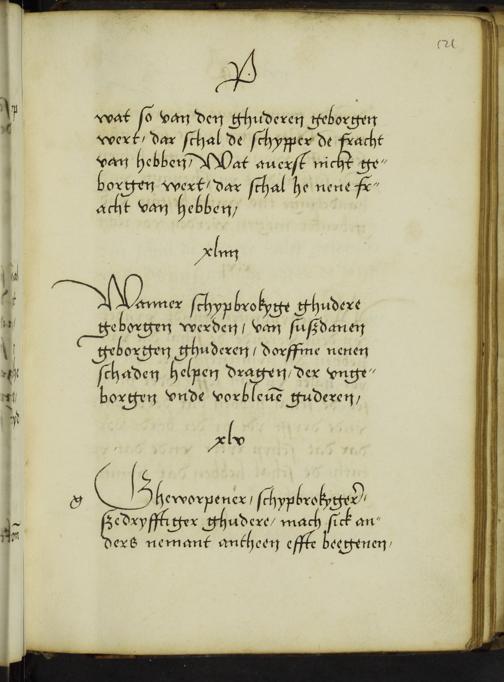 121
P
wat so van den ghuderen geborgen
wert/ dar schal de schypper de fracht
van hebben/ Wat auerst nicht ge=
borgen wert/ dar schal he nene fr=
acht van hebben/
xliiii
Wanner schypbrokyge ghudere
geborgen werden/ van sußdanen
geborgen ghuderen/ dorffme nenen
schaden helpen dragen/ der vnge=
borgen vnde vorbleuē guderen/
xlv
g
Gheworpener/ schypbrokyger/
ßedryfftiger ghudere/ mach sick an=
ders nemant antheen effte beegenen/